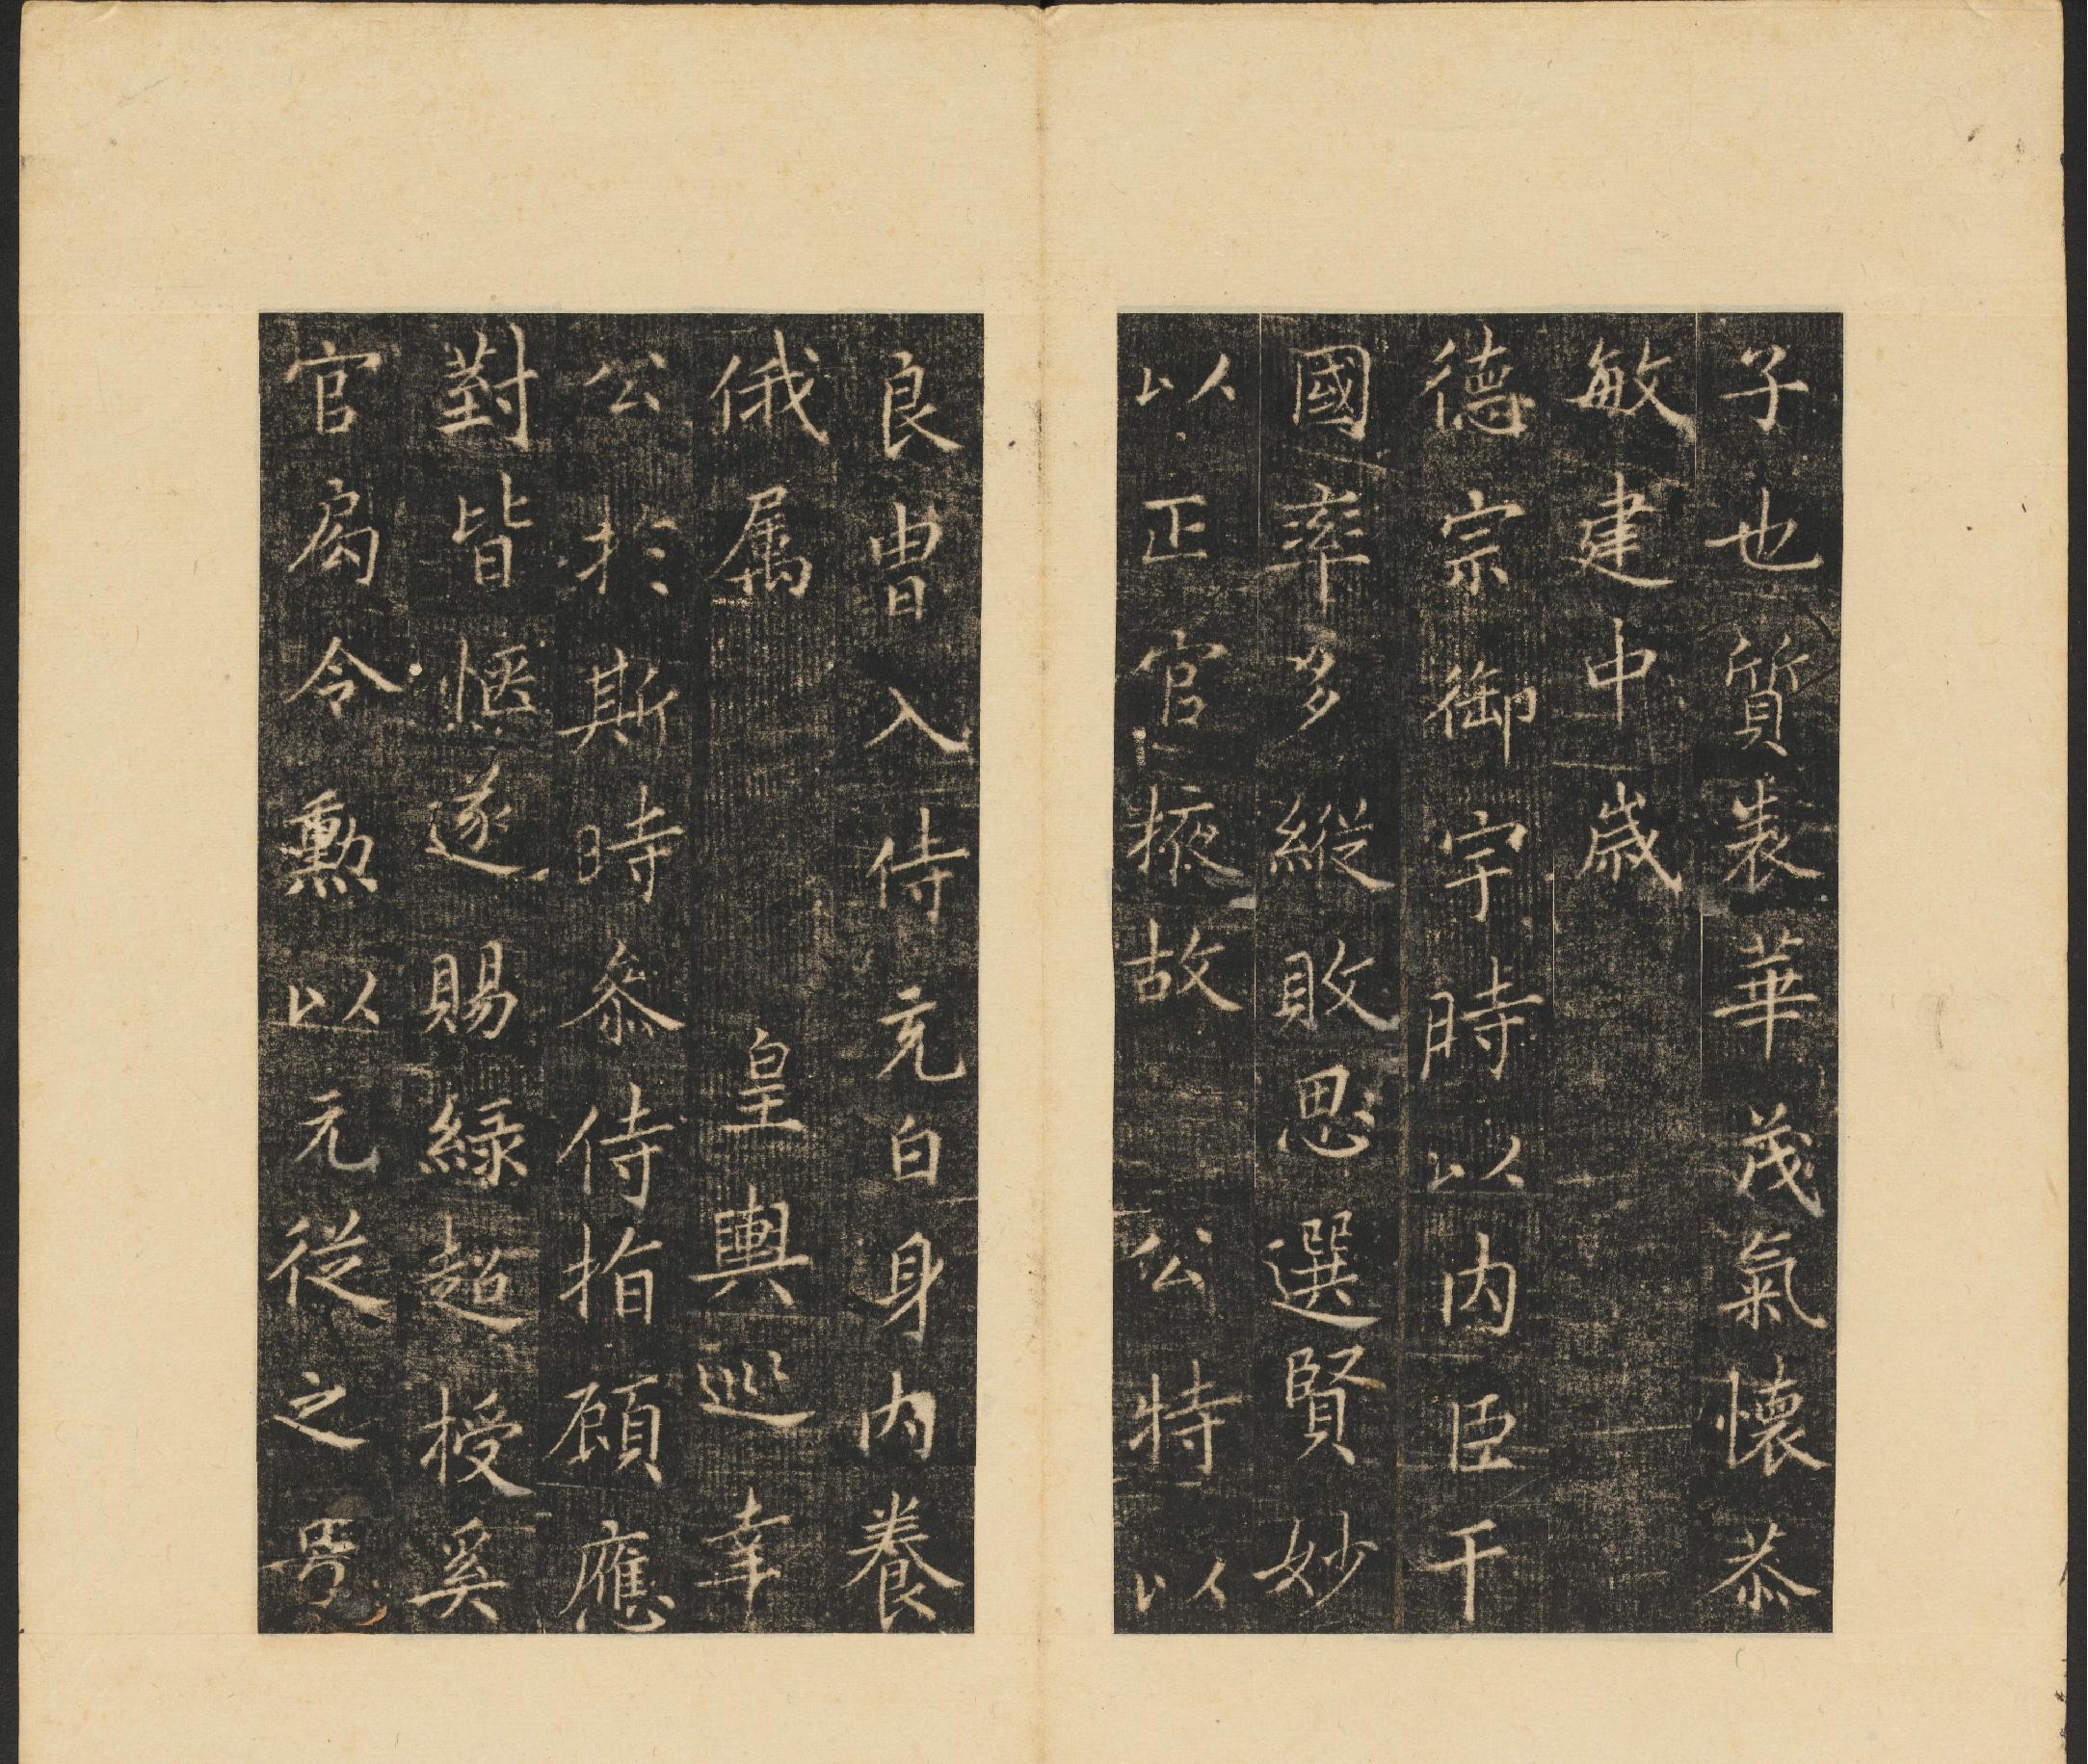 子也質表華茂氣懷恭
敏建中歲
德宗御宇時以内臣干
國率多縱敗思選賢妙
以正官掖故公特以
良胄入侍充白身内養
俄属皇輿巡幸
公扵斯時叅侍指顧應
對皆愜遂賜緑超授奚
官局令勳以元従之号